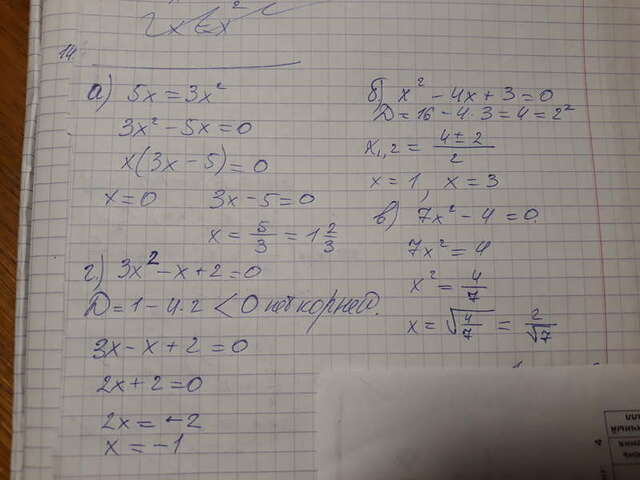 14
а) 5x = 3x²
3x² - 5x = 0
x(3x - 5) = 0
x = 0 3x - 5 = 0
x = 5/3 = 1 2/3
б) x² - 4x + 3 = 0
D = 16 - 4·3 = 4 = 2²
x1,2 = (4 ± 2)/2
x = 1, x = 3
в) 7x² - 4 = 0
7x² = 4
x² = 4/7
x = √(4/7) = 2/√7
г) 3x² - x + 2 = 0
D = 1 - 4·2 < 0 нет корней.
3x - x + 2 = 0
2x + 2 = 0
2x = -2
x = -1